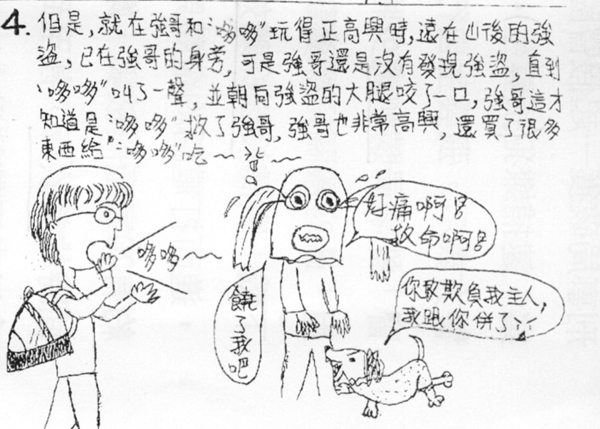 4. 但是,就在強哥和“哆哆”玩得正高興時,遠在山後的強
盜,已在強哥的身旁,可是強哥還是沒有發現強盜,直到
“哆哆”叫了一聲,並朝向強盜的大腿咬了一口,強哥這才
知道是“哆哆”救了強哥,強哥也非常高興,還買了很多
東西給“哆哆”吃~~~~
好痛啊!
救命啊!
哆哆~~
饒了我吧
你敢欺負我主人,
我跟你併了